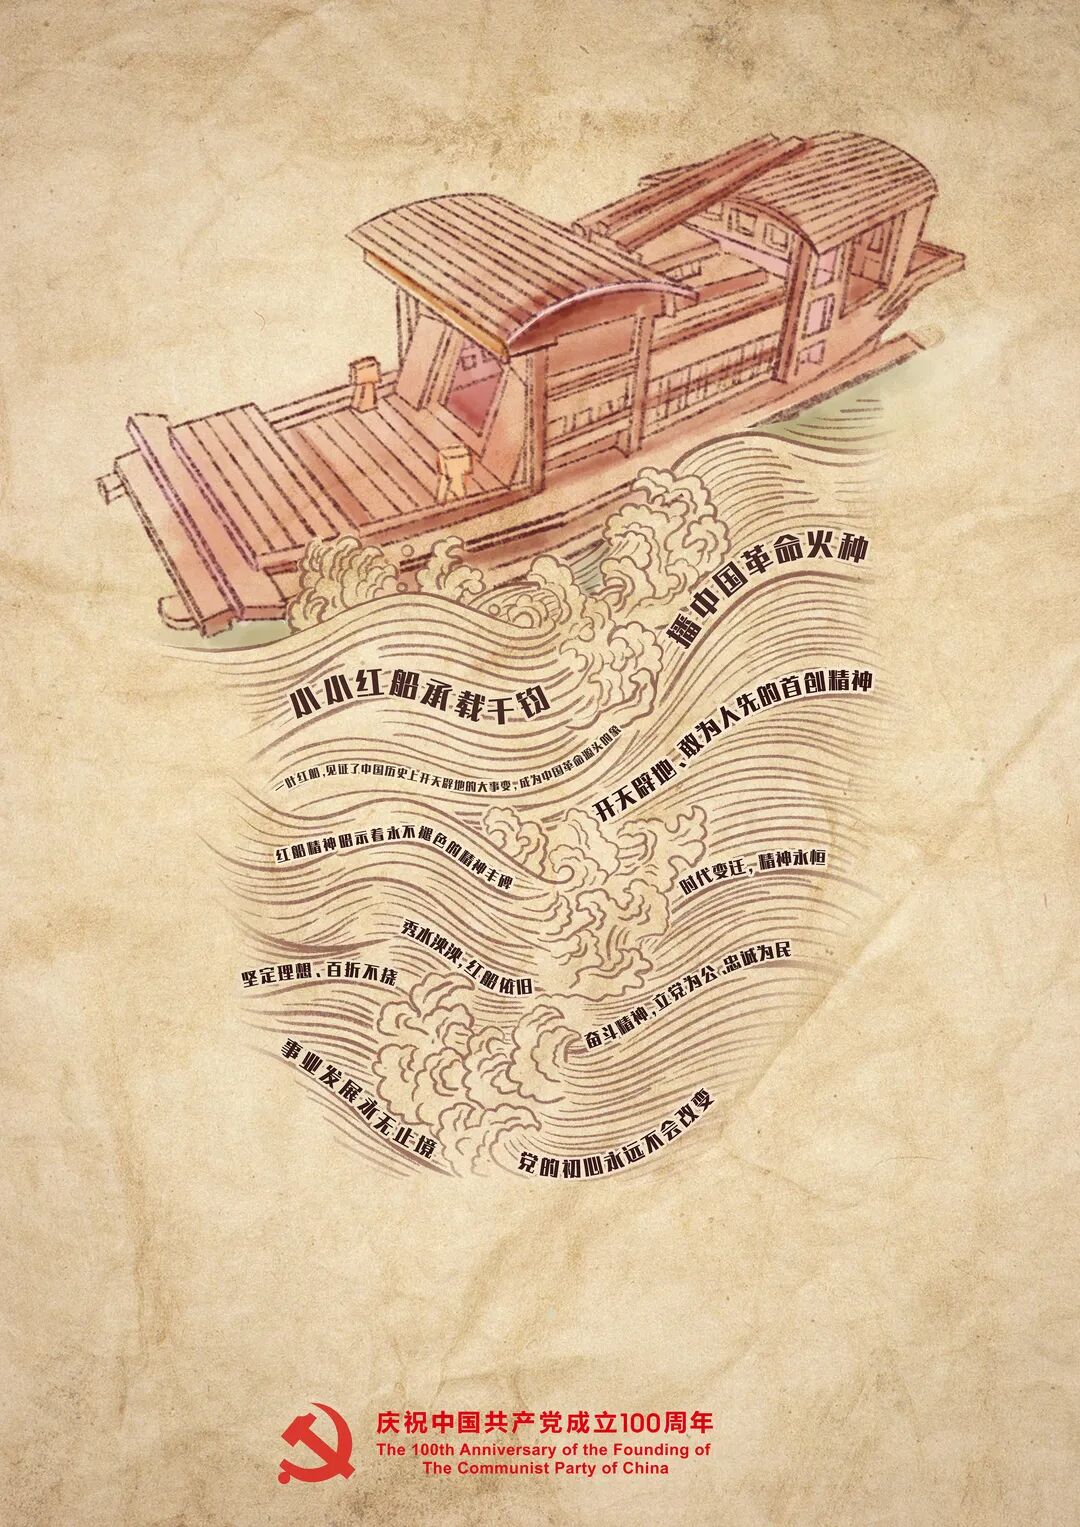 播中国革命火种
小小红船承载千钧
开天辟地、敢为人先的首创精神
一叶红船，见证了中国历史上开天辟地的大事变，成为中国革命源头的象
红船精神昭示着永不褪色的精神丰碑
时代变迁，精神永恒
秀水泱泱，红船依旧
坚定理想、百折不挠
奋斗精神，立党为公、忠诚为民
事业发展永无止境
党的初心永远不会改变
庆祝中国共产党成立100周年
The 100th Anniversary of the Founding of
The Communist Party of China